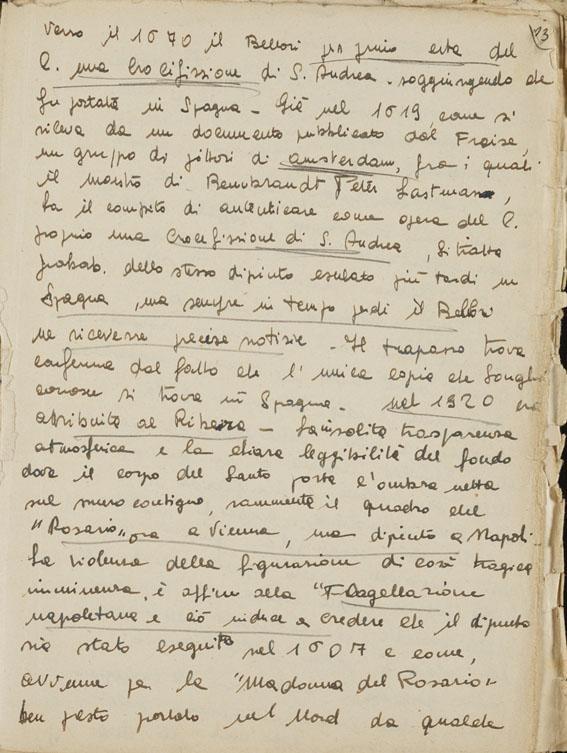 23
Verso il 1670 il Bellori già fa esta del
C. una Crocifissione di S. Andrea. soggiungendo che
fu portata in Spagna - Già nel 1619, come si
rileva da un documento pubblicato dal Freise,
un gruppo di pittori di Amsterdam, fra i quali
il maestro di Rembrandt Peter Lastman,
ha il compito di autenticare come opera del C.
proprio una Crocefissione di S. Andrea, si tratta
probab. dello stesso dipinto esulato più tardi in
Spagna, ma sempre in tempo perchè il Bellori
ne ricevesse precise notizie - Il trapasso trova
conferma dal fatto che l'unica copia che Longhi
conosce si trova in Spagna. nel 1920 era
attribuita al Ribera - La insolita trasparenza
atmosferica e la chiara leggibilità del fondo
dove il corpo del Santo porta l'ombra netta
sul muro contiguo, rammenta il quadro del
"Rosario" ora a Vienna, ma dipinto a Napoli.
La violenza della figurazione di così tragica
imminenza, è affine alla "Flagellazione
napoletana e ciò induce a credere che il dipinto
sia stato eseguito nel 1607 e come,
avvenne per la "Madonna del Rosario"
ben presto portato nel Nord da qualche